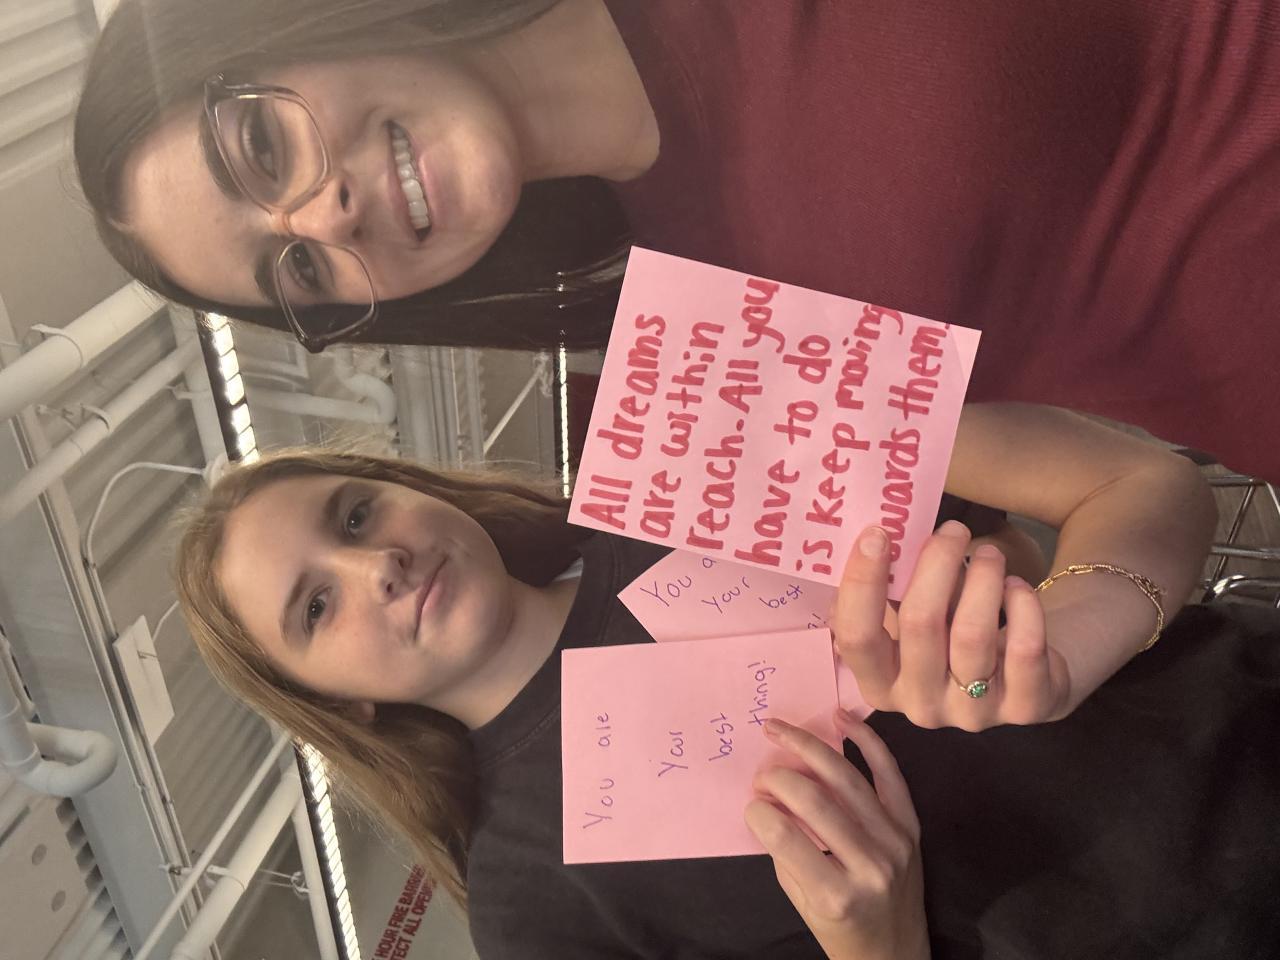 All dreams
are within
reach. All you
have to do
is keep moving
towards them.
You are
Your
best
thing!
You a
Your
best
HOUR FIRE BARRIER
TECT ALL OPENI